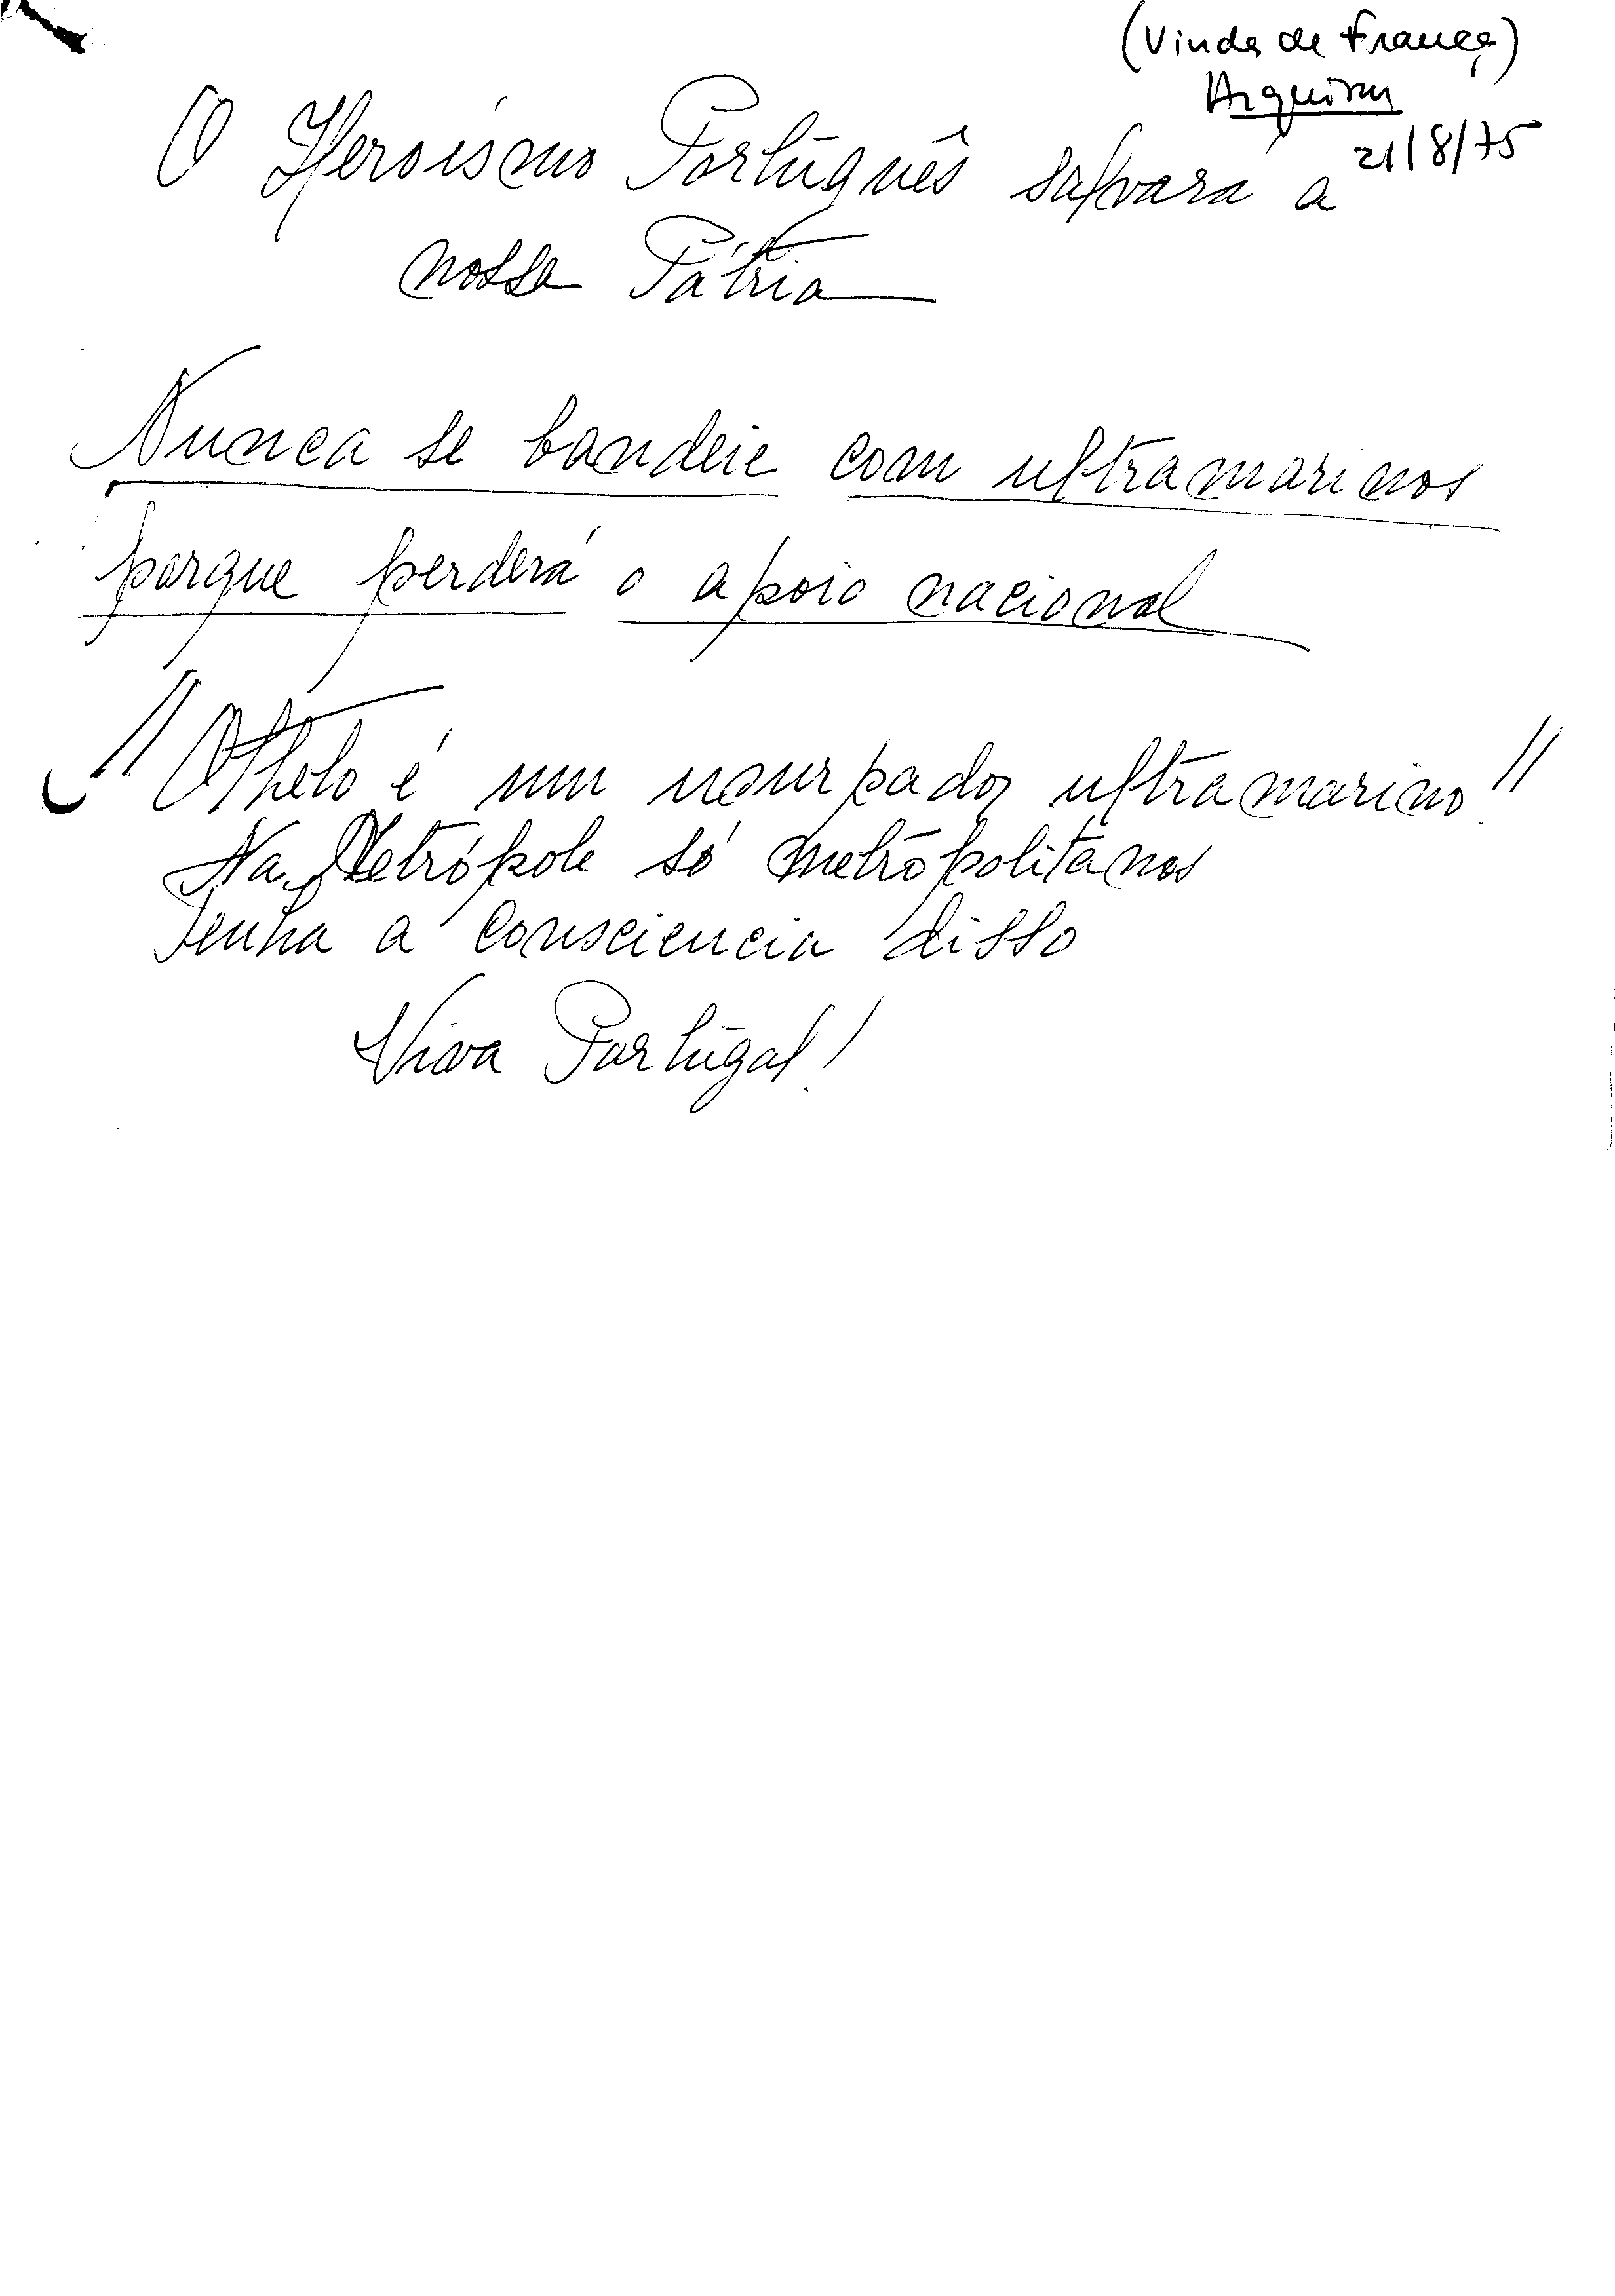 (Vinda de França)
Arquivar
21/8/75
O Heroísmo Português salvará a
nossa Pátria
Nunca se bandeie com ultramarinos
porque perderá o apoio nacional
"Othelo é um usurpador ultramarino!"
Na Metrópole só metropolitanos
Tenha a consciencia disso
Viva Portugal!